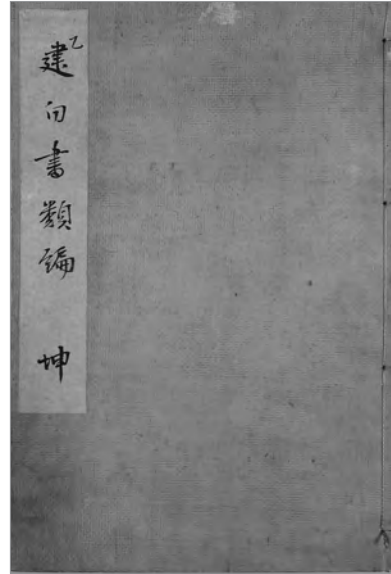 乙
建白書類編 坤